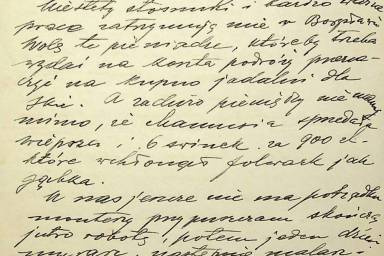 Niestety stosunki i bardzo ważna
praca zatrzymują mnie w
Wolę te pieniądze, któreby trzeba
wydać na koszta podróży przezna-
czyć na kupno jadalni dla
. A zadużo pieniędzy nie mamy
mimo, że Mamusia sprzedała
wieprza i 6 świnek za 900 zł.
które wchłonął folwark jak
gąbka.
U nas jeszcze nie ma porządku
monterzy przypuszczam skończą
jutro robotę, potem jeden dzień
murarz, następnie malarz-